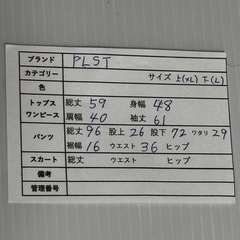 ブランド PLST
カテゴリー サイズ 上(XL) 下(L)
色
トップス 総丈 59 身幅 48
ワンピース 肩幅 40 袖丈 61
パンツ 総丈 96 股上 26 股下 72 ワタリ 29
裾幅 16 ウエスト 36 ヒップ
スカート 総丈 ウエスト ヒップ
備考
管理番号